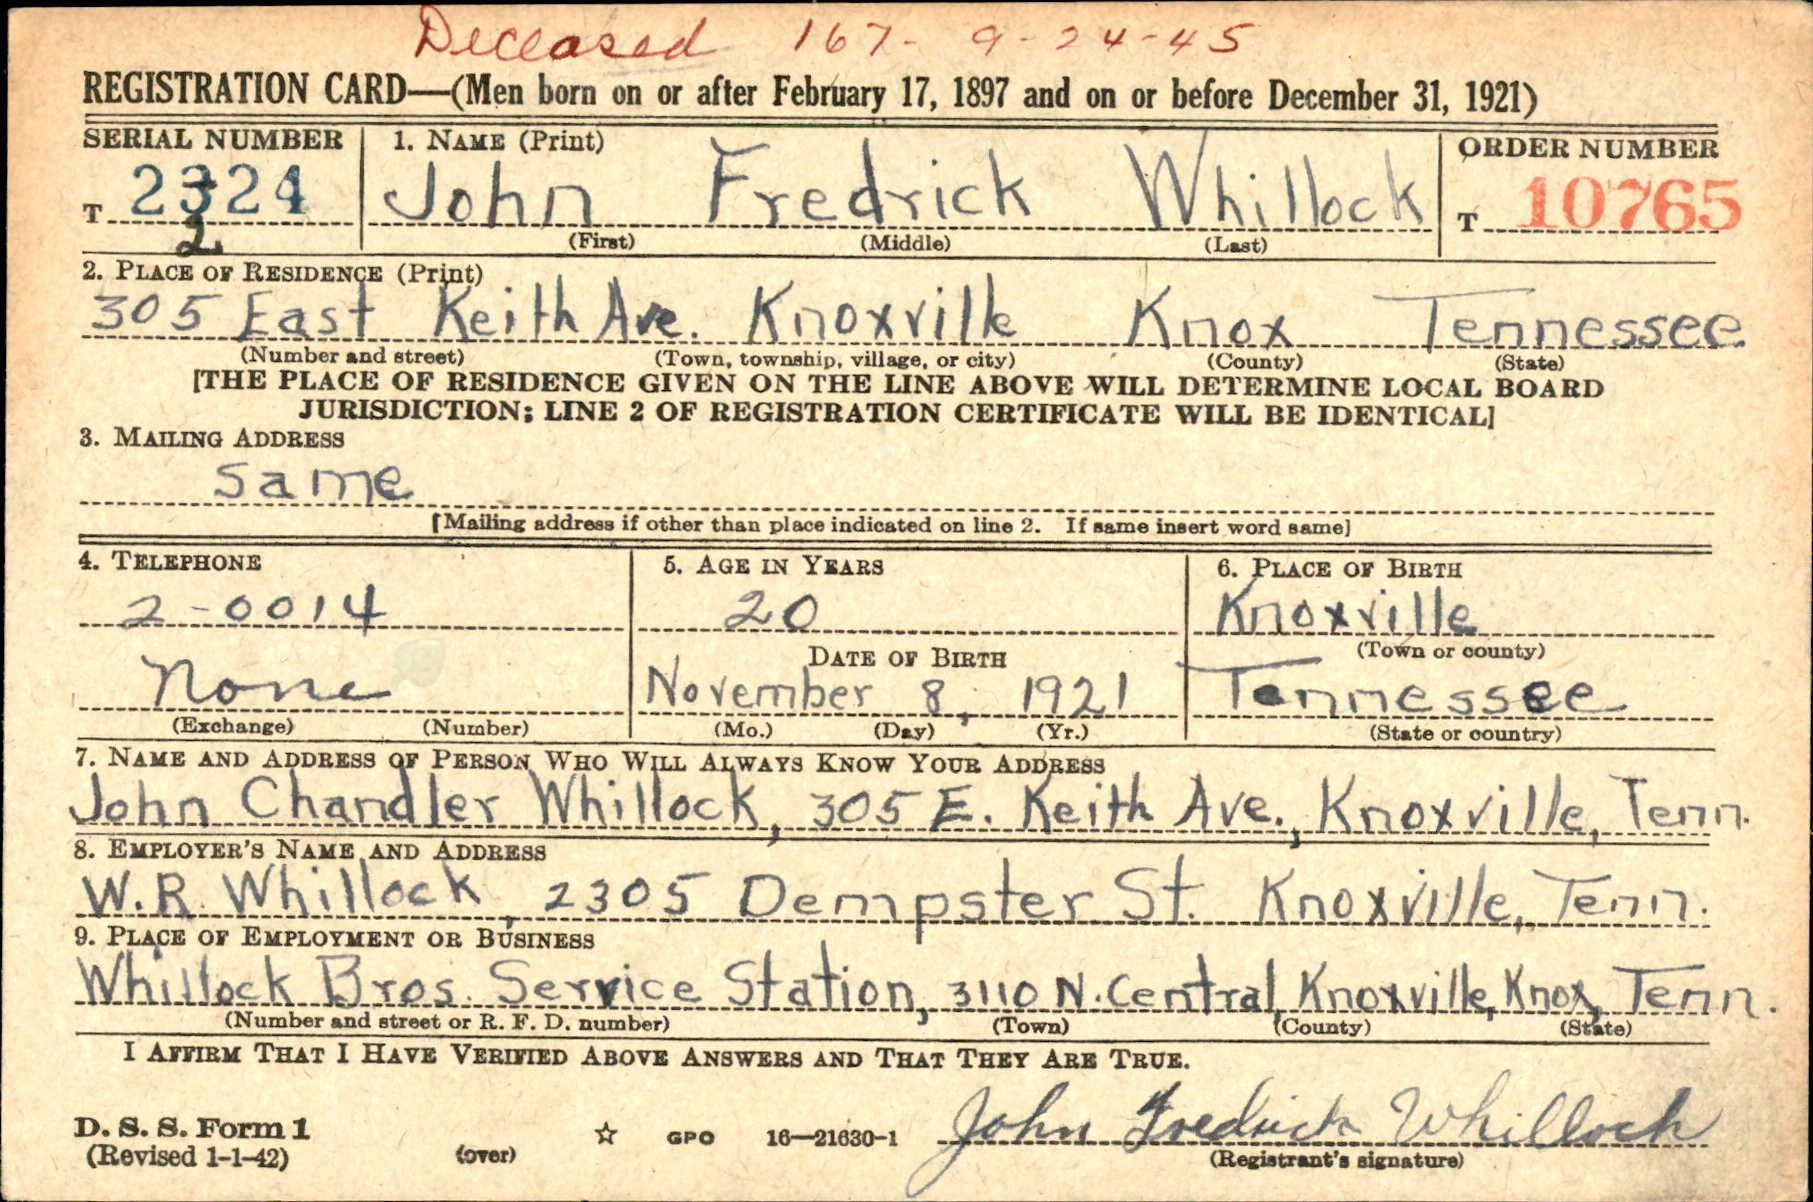 Deceased 167- 9-24-45
REGISTRATION CARD—(Men born on or after February 17, 1897 and on or before December 31, 1921)
SERIAL NUMBER
1. NAME (Print)
ORDER NUMBER
T 2324 John Fredrick Whillock T 10765
2
(First) (Middle) (Last)
2. PLACE OF RESIDENCE (Print)
305 East Keith Ave. Knoxville Knox Tennessee
(Number and street) (Town, township, village, or city) (County) (State)
[THE PLACE OF RESIDENCE GIVEN ON THE LINE ABOVE WILL DETERMINE LOCAL BOARD
JURISDICTION; LINE 2 OF REGISTRATION CERTIFICATE WILL BE IDENTICAL]
3. MAILING ADDRESS
Same
[Mailing address if other than place indicated on line 2. If same insert word same]
4. TELEPHONE
2-0014
None
(Exchange) (Number)
5. AGE IN YEARS
20
DATE OF BIRTH
November 8, 1921
(Mo.) (Day) (Yr.)
6. PLACE OF BIRTH
Knoxville
(Town or county)
Tennessee
(State or country)
7. NAME AND ADDRESS OF PERSON WHO WILL ALWAYS KNOW YOUR ADDRESS
John Chandler Whillock, 305 E. Keith Ave., Knoxville, Tenn.
8. EMPLOYER'S NAME AND ADDRESS
W.R. Whillock, 2305 Dempster St. Knoxville, Tenn.
9. PLACE OF EMPLOYMENT OR BUSINESS
Whillock Bros. Service Station, 3110 N. Central, Knoxville, Knox, Tenn.
(Number and street or R. F. D. number) (Town) (County) (State)
I AFFIRM THAT I HAVE VERIFIED ABOVE ANSWERS AND THAT THEY ARE TRUE.
John Fredrick Whillock
(Registrant's signature)
D. S. S. Form 1
(Revised 1-1-42) (over) ☆ GPO 16—21630-1